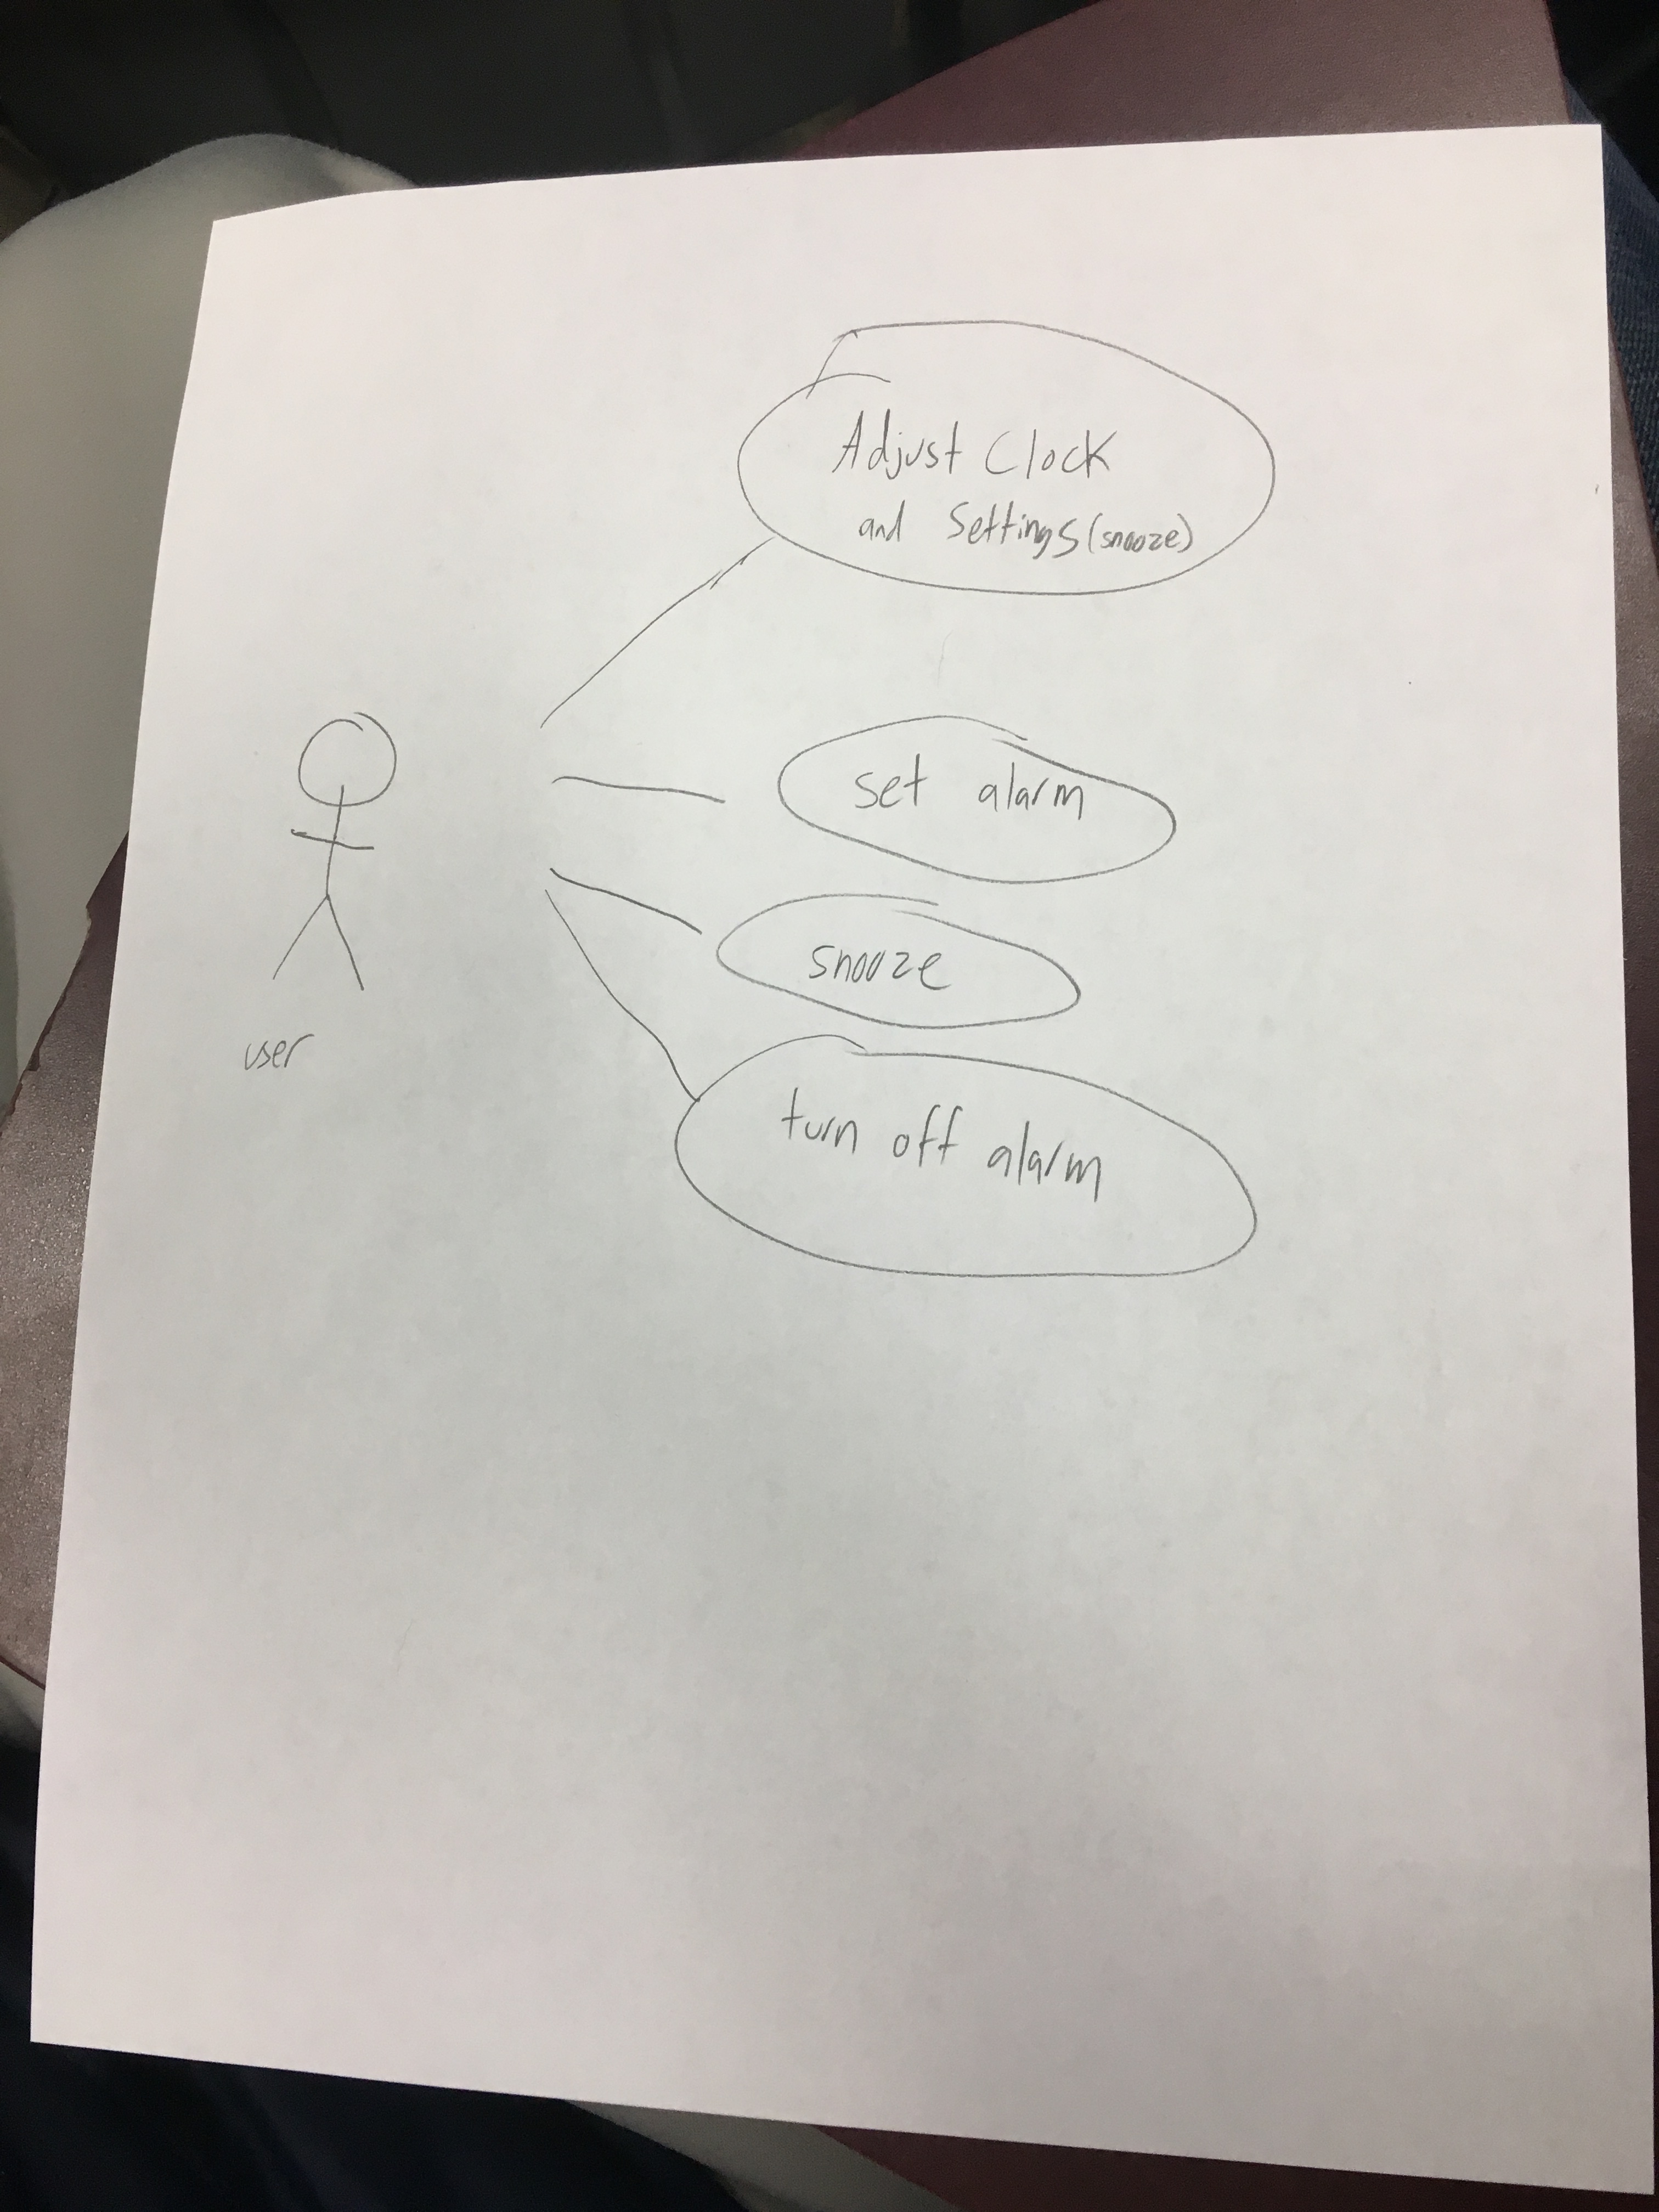 Adjust Clock
and Settings (snooze)
set alarm
snooze
user
turn off alarm